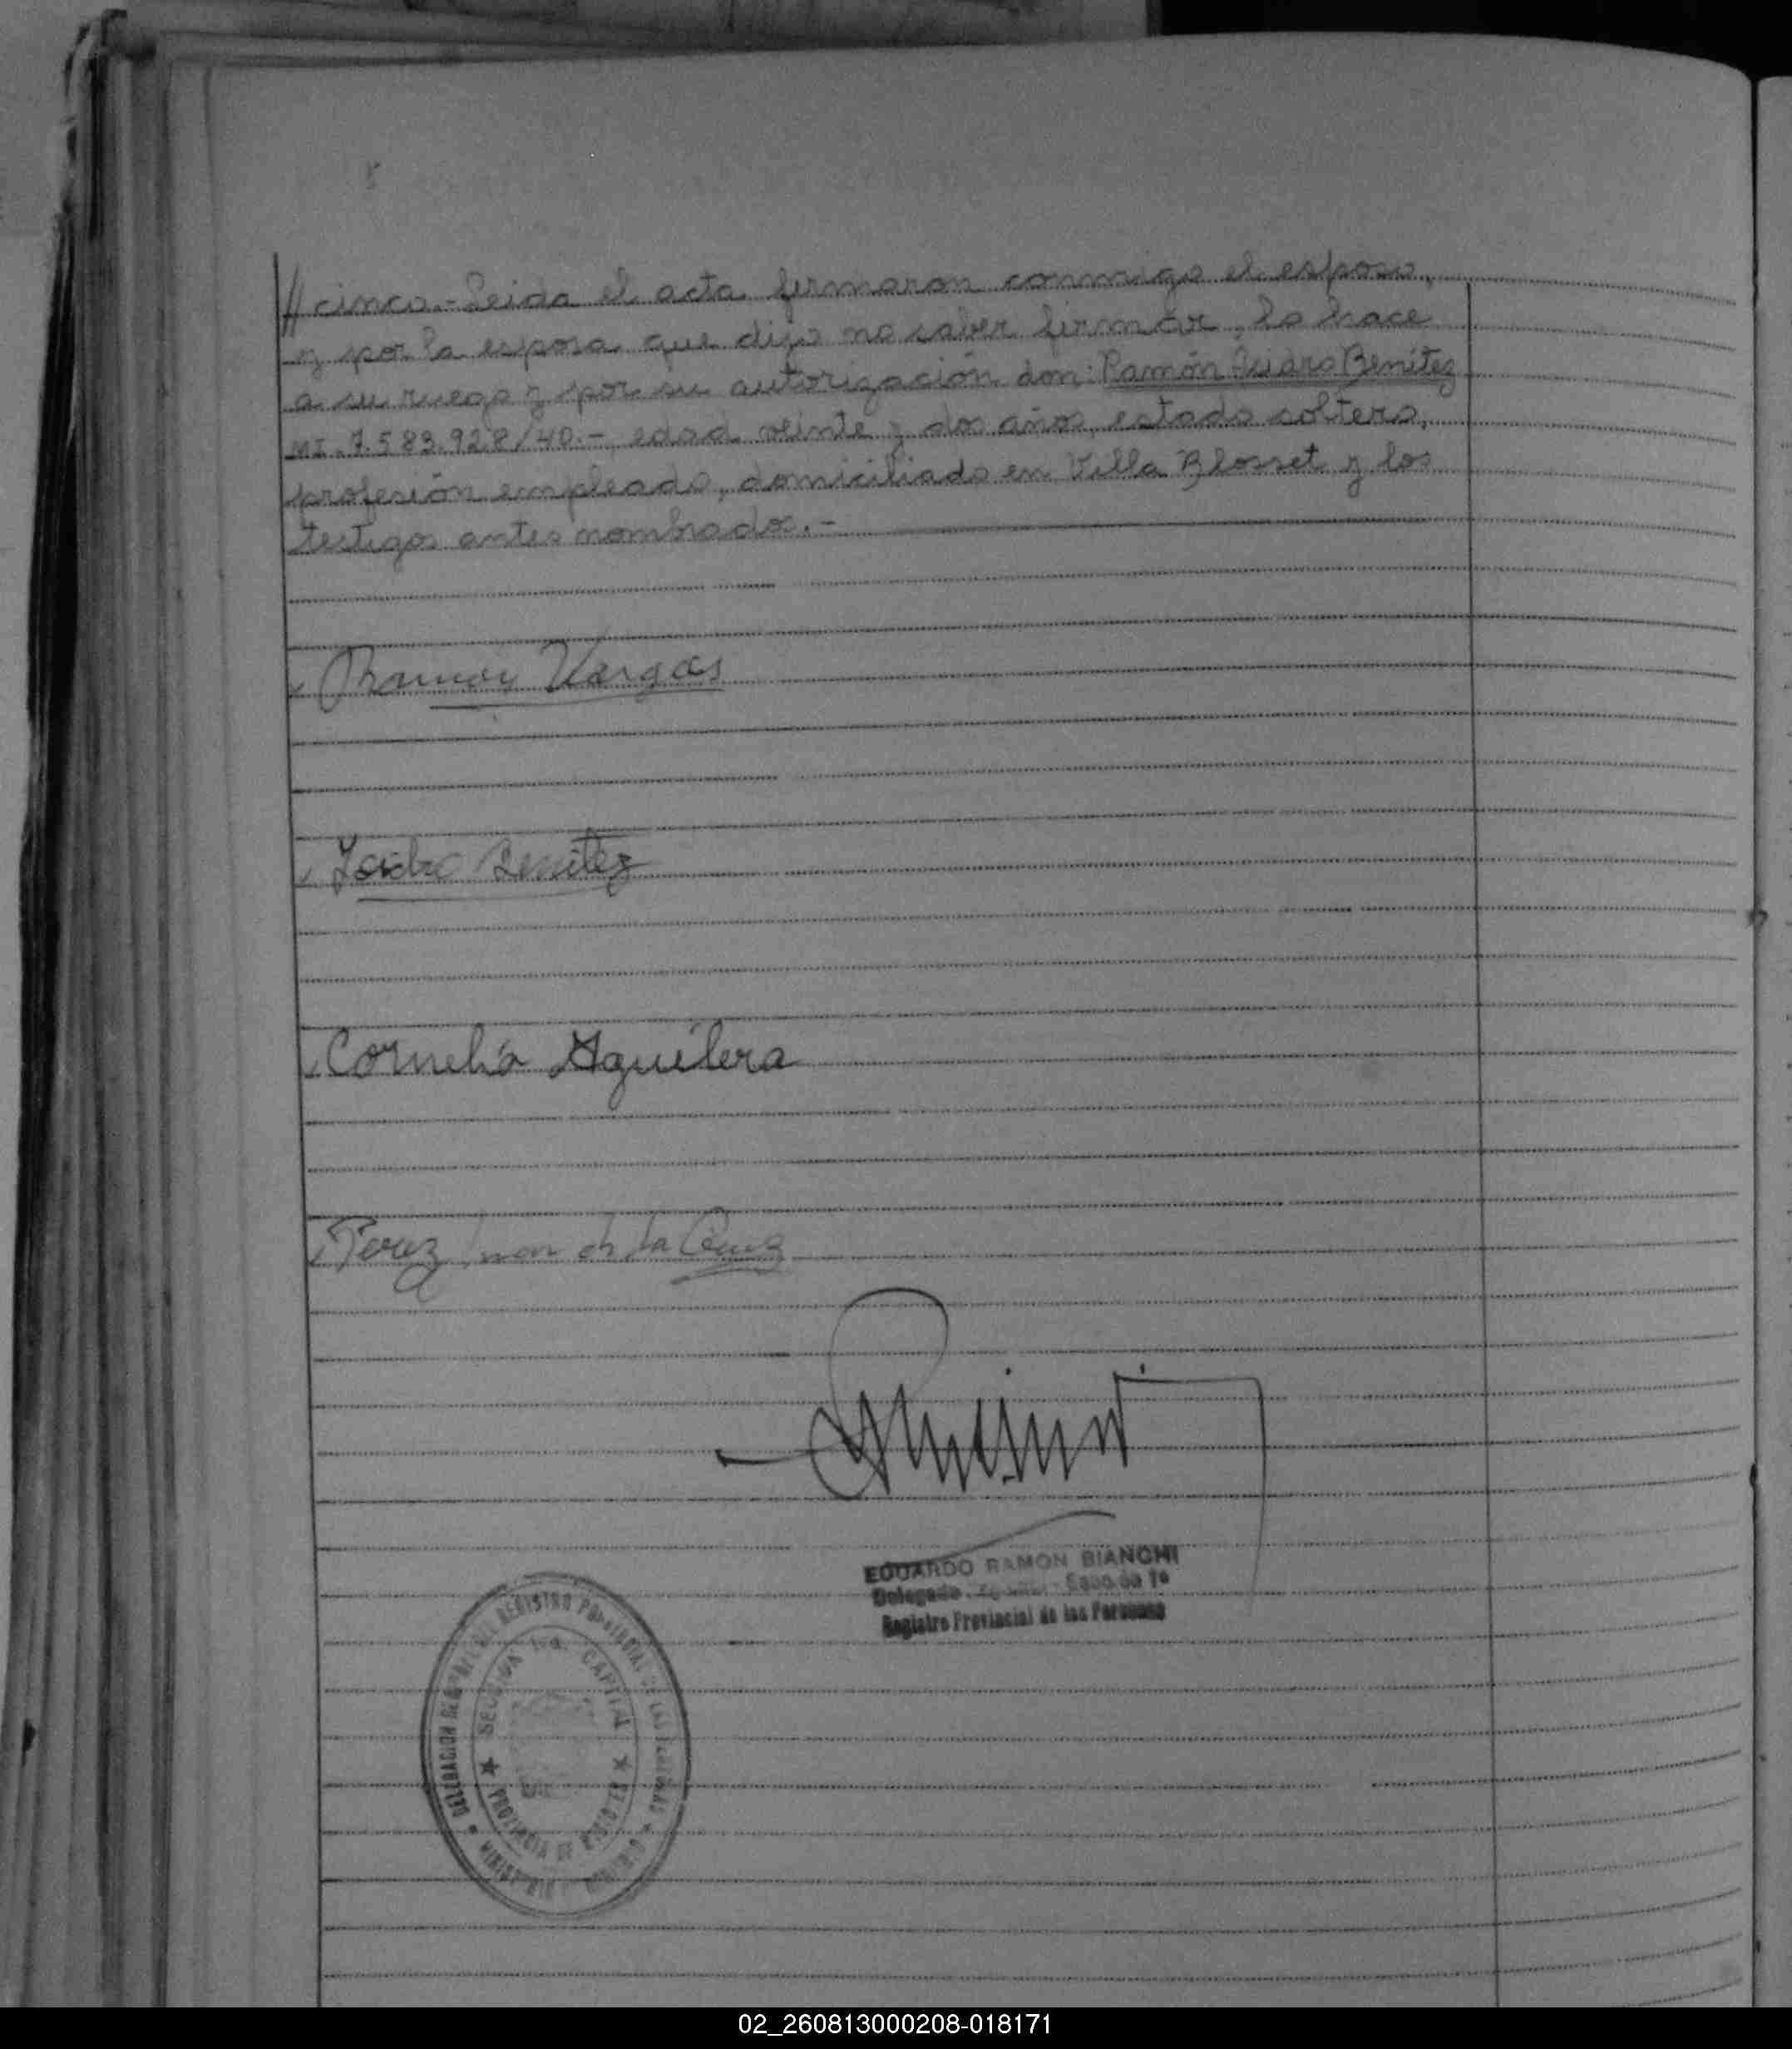 // cinco.- Leida el acta firmaron conmigo el esposo,
y por la esposa que dijo no saber firmar, lo hace
a su ruego y por su autorización don: Ramón Benítez
MI. 7.583.928/40.- edad veinte y dos años, estado soltero,
profesión empleado, domiciliado en Villa Blosset y los
testigos antes nombrados.-
Ramon Vargas
Isidro Benitez
Cornelia Aguilera
Perez Juan de la Cruz
EDUARDO RAMON BIANCHI
Delegado
Registro Provincial de las Personas
DELEGACION DEL REGISTRO PROVINCIAL DE LAS PERSONAS
SECCION CAPITAL
PROVINCIA DE
MINISTERIO GOBIERNO
02_260813000208-018171